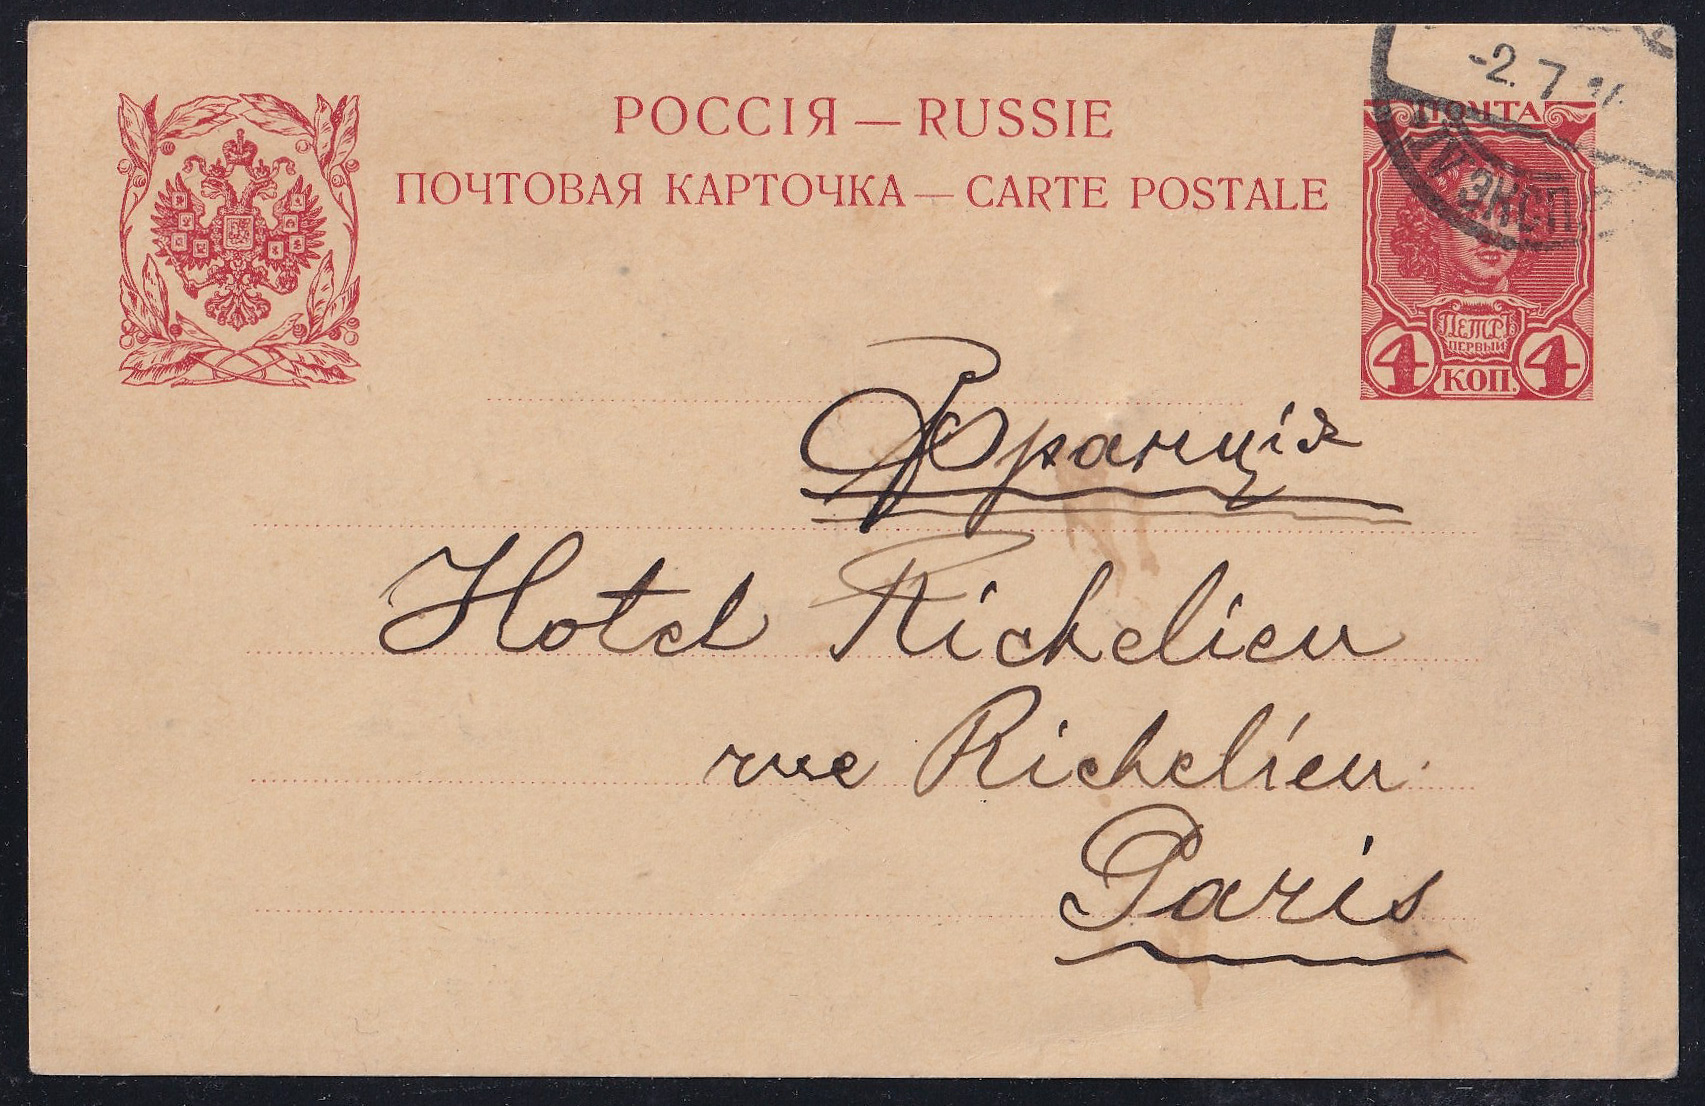 РОССІЯ — RUSSIE
ПОЧТОВАЯ КАРТОЧКА — CARTE POSTALE
-2.7
ПОЧТА
IV ЭКСП.
ПЕТРЪ
ПЕРВЫЙ
4 КОП. 4
Франція
Hotel Richelieu
rue Richelieu
Paris